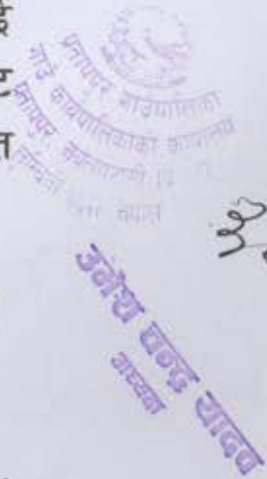 प्रतापपुर गाउँपालिका
गाउँ कार्यपालिकाको कार्यालय
प्रतापपुर नवलपरासी
नेपाल
उमेश चन्द्र यादव
अध्यक्ष